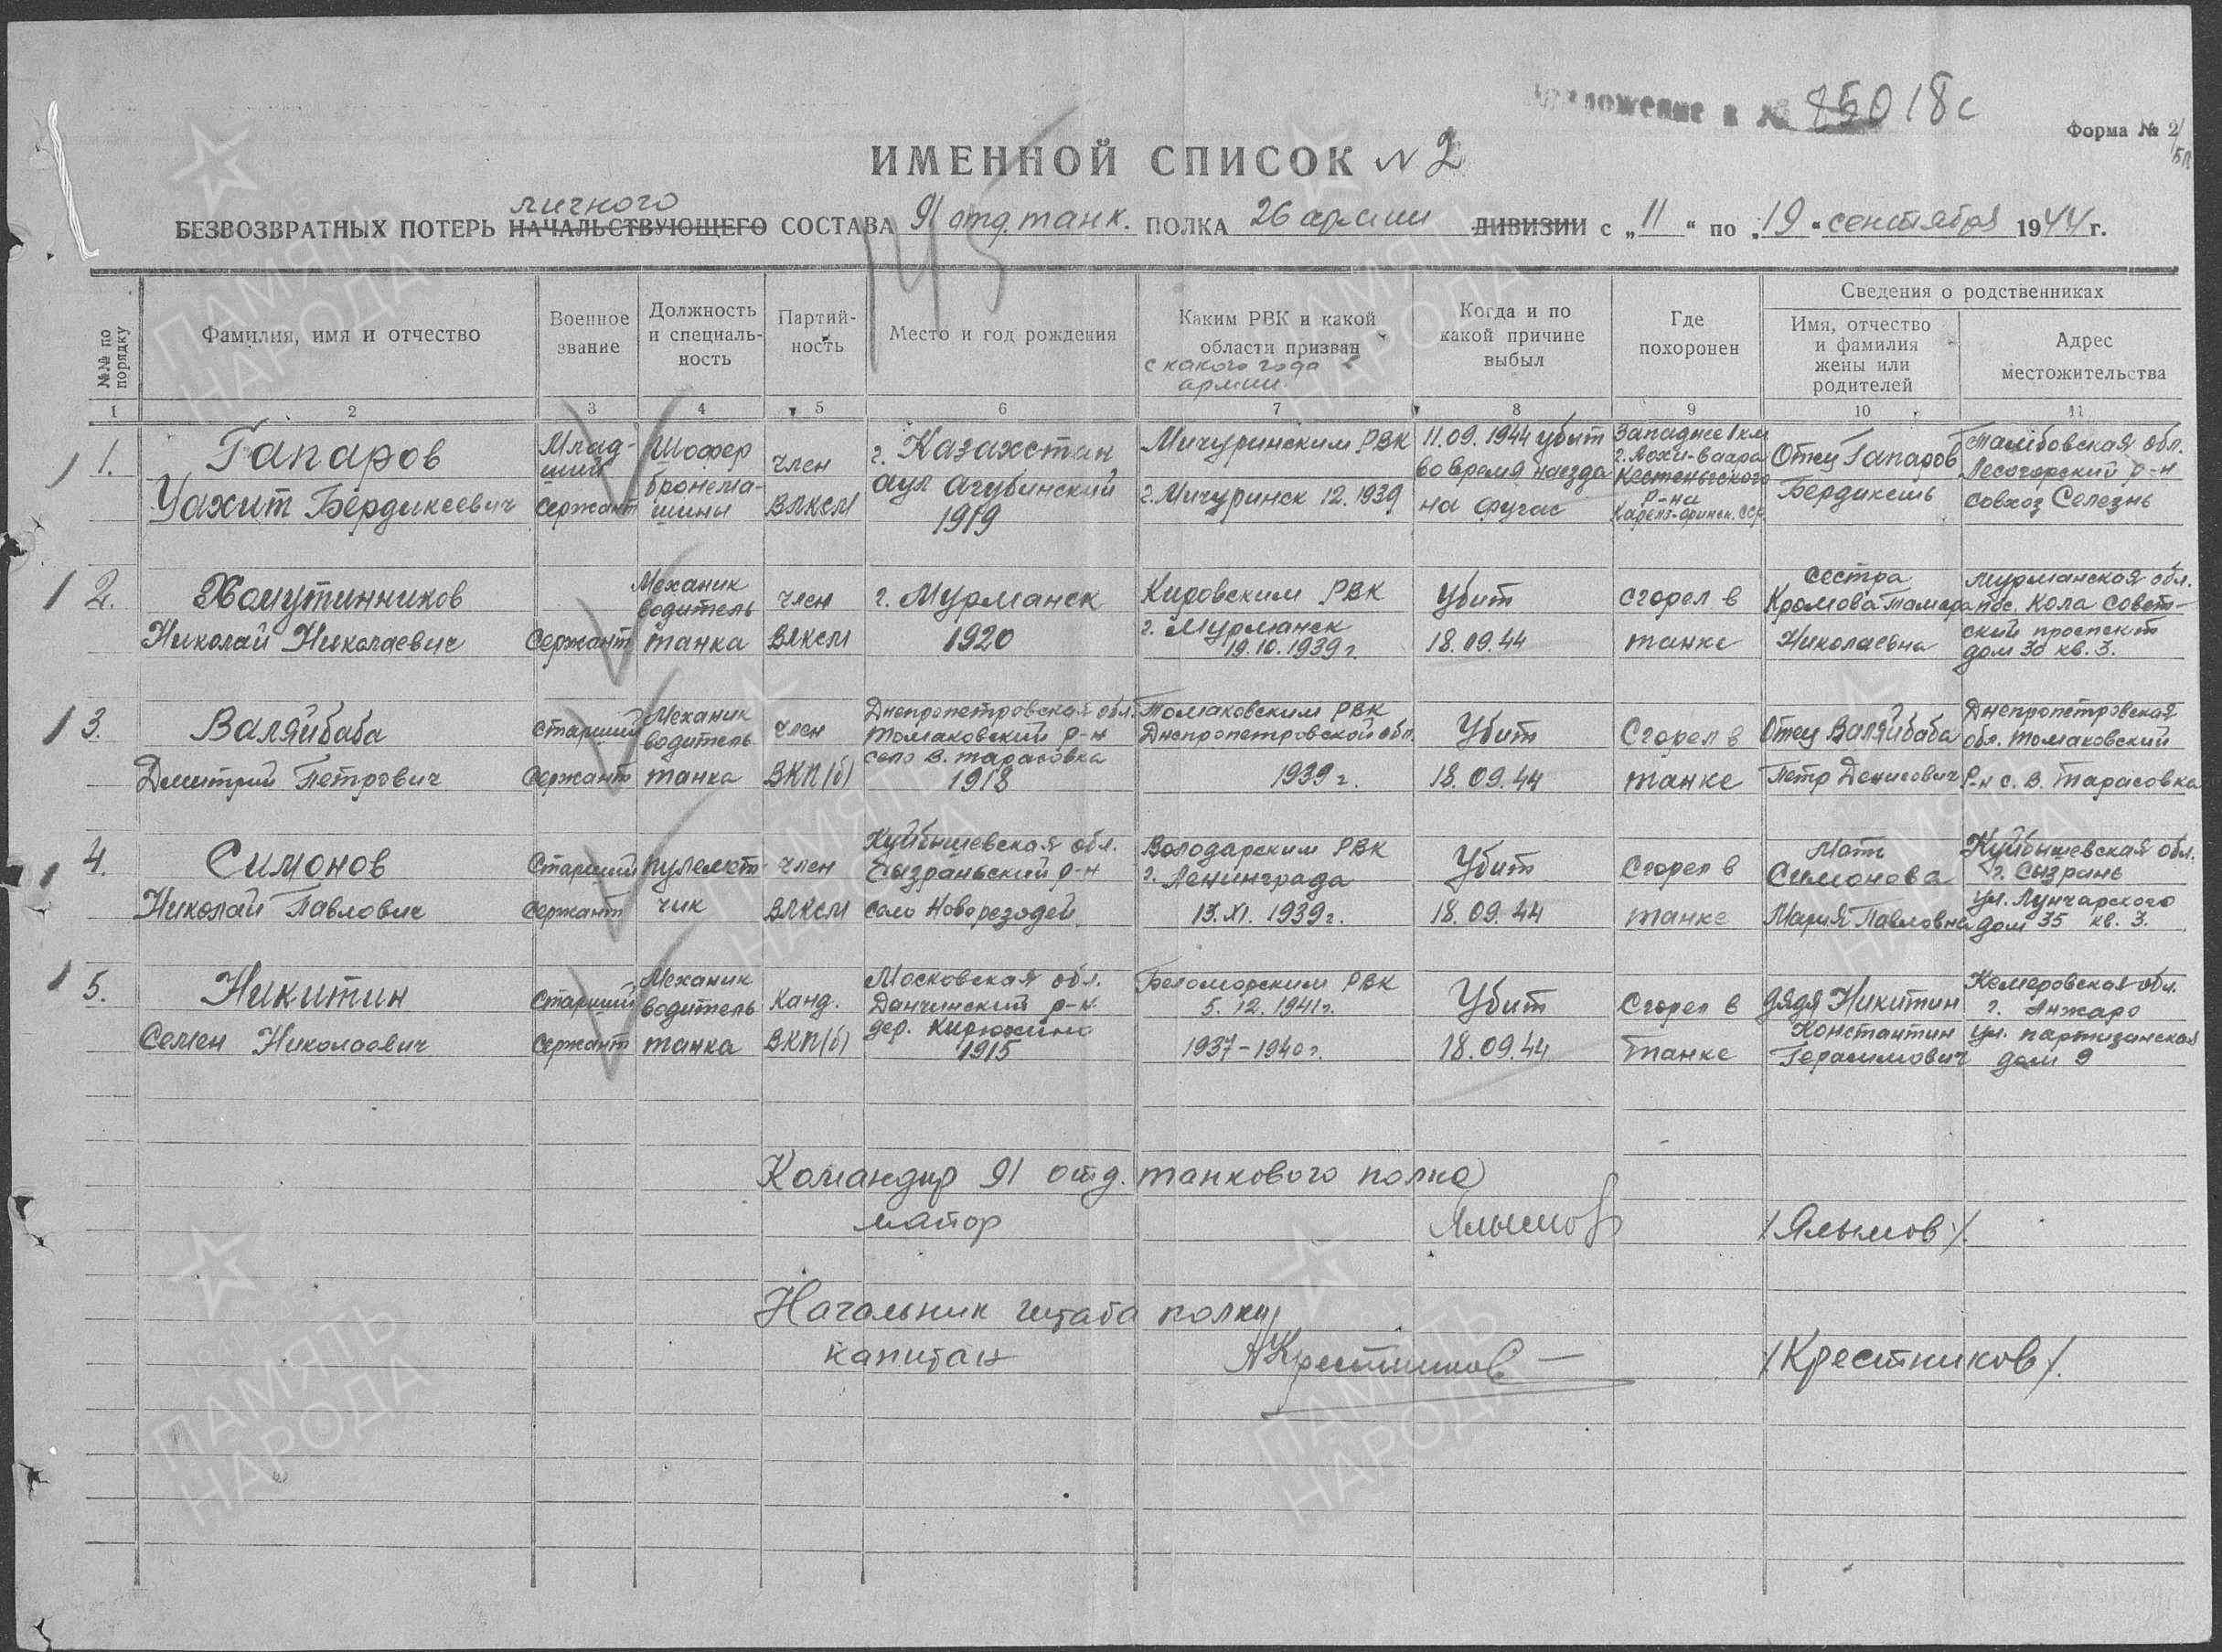 Приложение к № 85018с
Форма № 2/БП
ИМЕННОЙ СПИСОК N 2
личного
БЕЗВОЗВРАТНЫХ ПОТЕРЬ НАЧАЛЬСТВУЮЩЕГО СОСТАВА 91 отд. танк. ПОЛКА 26 армии ДИВИЗИИ с „11“ по „19“ сентября 1944 г.
145
№№ по порядку
Фамилия, имя и отчество
Военное звание
Должность и специальность
Партийность
Место и год рождения
Каким РВК и какой области призван
с какого года в армии.
Когда и по какой причине выбыл
Где похоронен
Сведения о родственниках
Имя, отчество и фамилия жены или родителей
Адрес местожительства
1 2 3 4 5 6 7 8 9 10 11
1.
Гапаров
Уахит Бердикеевич
Млад-
ший
сержант
Шофер
бронема-
шины
член
ВЛКСМ
г. Казахстан
аул Агубинский
1919
Мичуринским РВК
г. Мичуринск 12.1939
11.09.1944 убит
во время наезда
на фугас
Западнее 1 км
г. Лохи-ваара
Кестеньгского
р-на
Карело-финск. ССР.
Отец Гапаров
Бердикешь
Тамбовская обл.
Лесогорский р-н
совхоз Селезнь
2.
Хомутинников
Николай Николаевич
Сержант
Механик
водитель
танка
член
ВЛКСМ
г. Мурманск
1920
Кировским РВК
г. Мурманск
19.10.1939 г.
Убит
18.09.44
сгорел в
танке
сестра
Кромова Тамара
Николаевна
Мурманская обл.
пос. Кола Совет-
ский проспект
дом 30 кв. 3.
3.
Валяйбаба
Дмитрий Петрович
старший
сержант
Механик
водитель
танка
член
ВКП(б)
Днепропетровская обл.
Томаковский р-н
село В. Тарасовка
1918
Томаковским РВК
Днепропетровской обл.
1939 г.
Убит
18.09.44
Сгорел в
танке
Отец Валяйбаба
Петр Денисович
Днепропетровская
обл. Томаковский
р-н с. В. Тарасовка
4.
Симонов
Николай Павлович
Старший
сержант
пулемет-
чик
член
ВЛКСМ
Куйбышевская обл.
Сызраньский р-н
село Новорезодей
Володарским РВК
г. Ленинграда
13.XI.1939 г.
Убит
18.09.44
Сгорел в
танке
Мать
Симонова
Мария Павловна
Куйбышевская обл.
г. Сызрань
ул. Лунчарского
дом 35 кв. 3.
5.
Никитин
Семен Николаевич
Старший
сержант
Механик
водитель
танка
Канд.
ВКП(б)
Московская обл.
дер. Кирюхино
1915
Беломорским РВК
5.12.1941 г.
1937-1940 г.
Убит
18.09.44
Сгорел в
танке
дядя Никитин
Константин
Герасимович
Кемеровская обл.
г. Анжаро
ул. партизанская
дом 9
Командир 91 отд. танкового полка
майор Ялымов /Ялымов/.
Начальник штаба полка
капитан АКрестников /Крестников/.
ПАМЯТЬ
НАРОДА